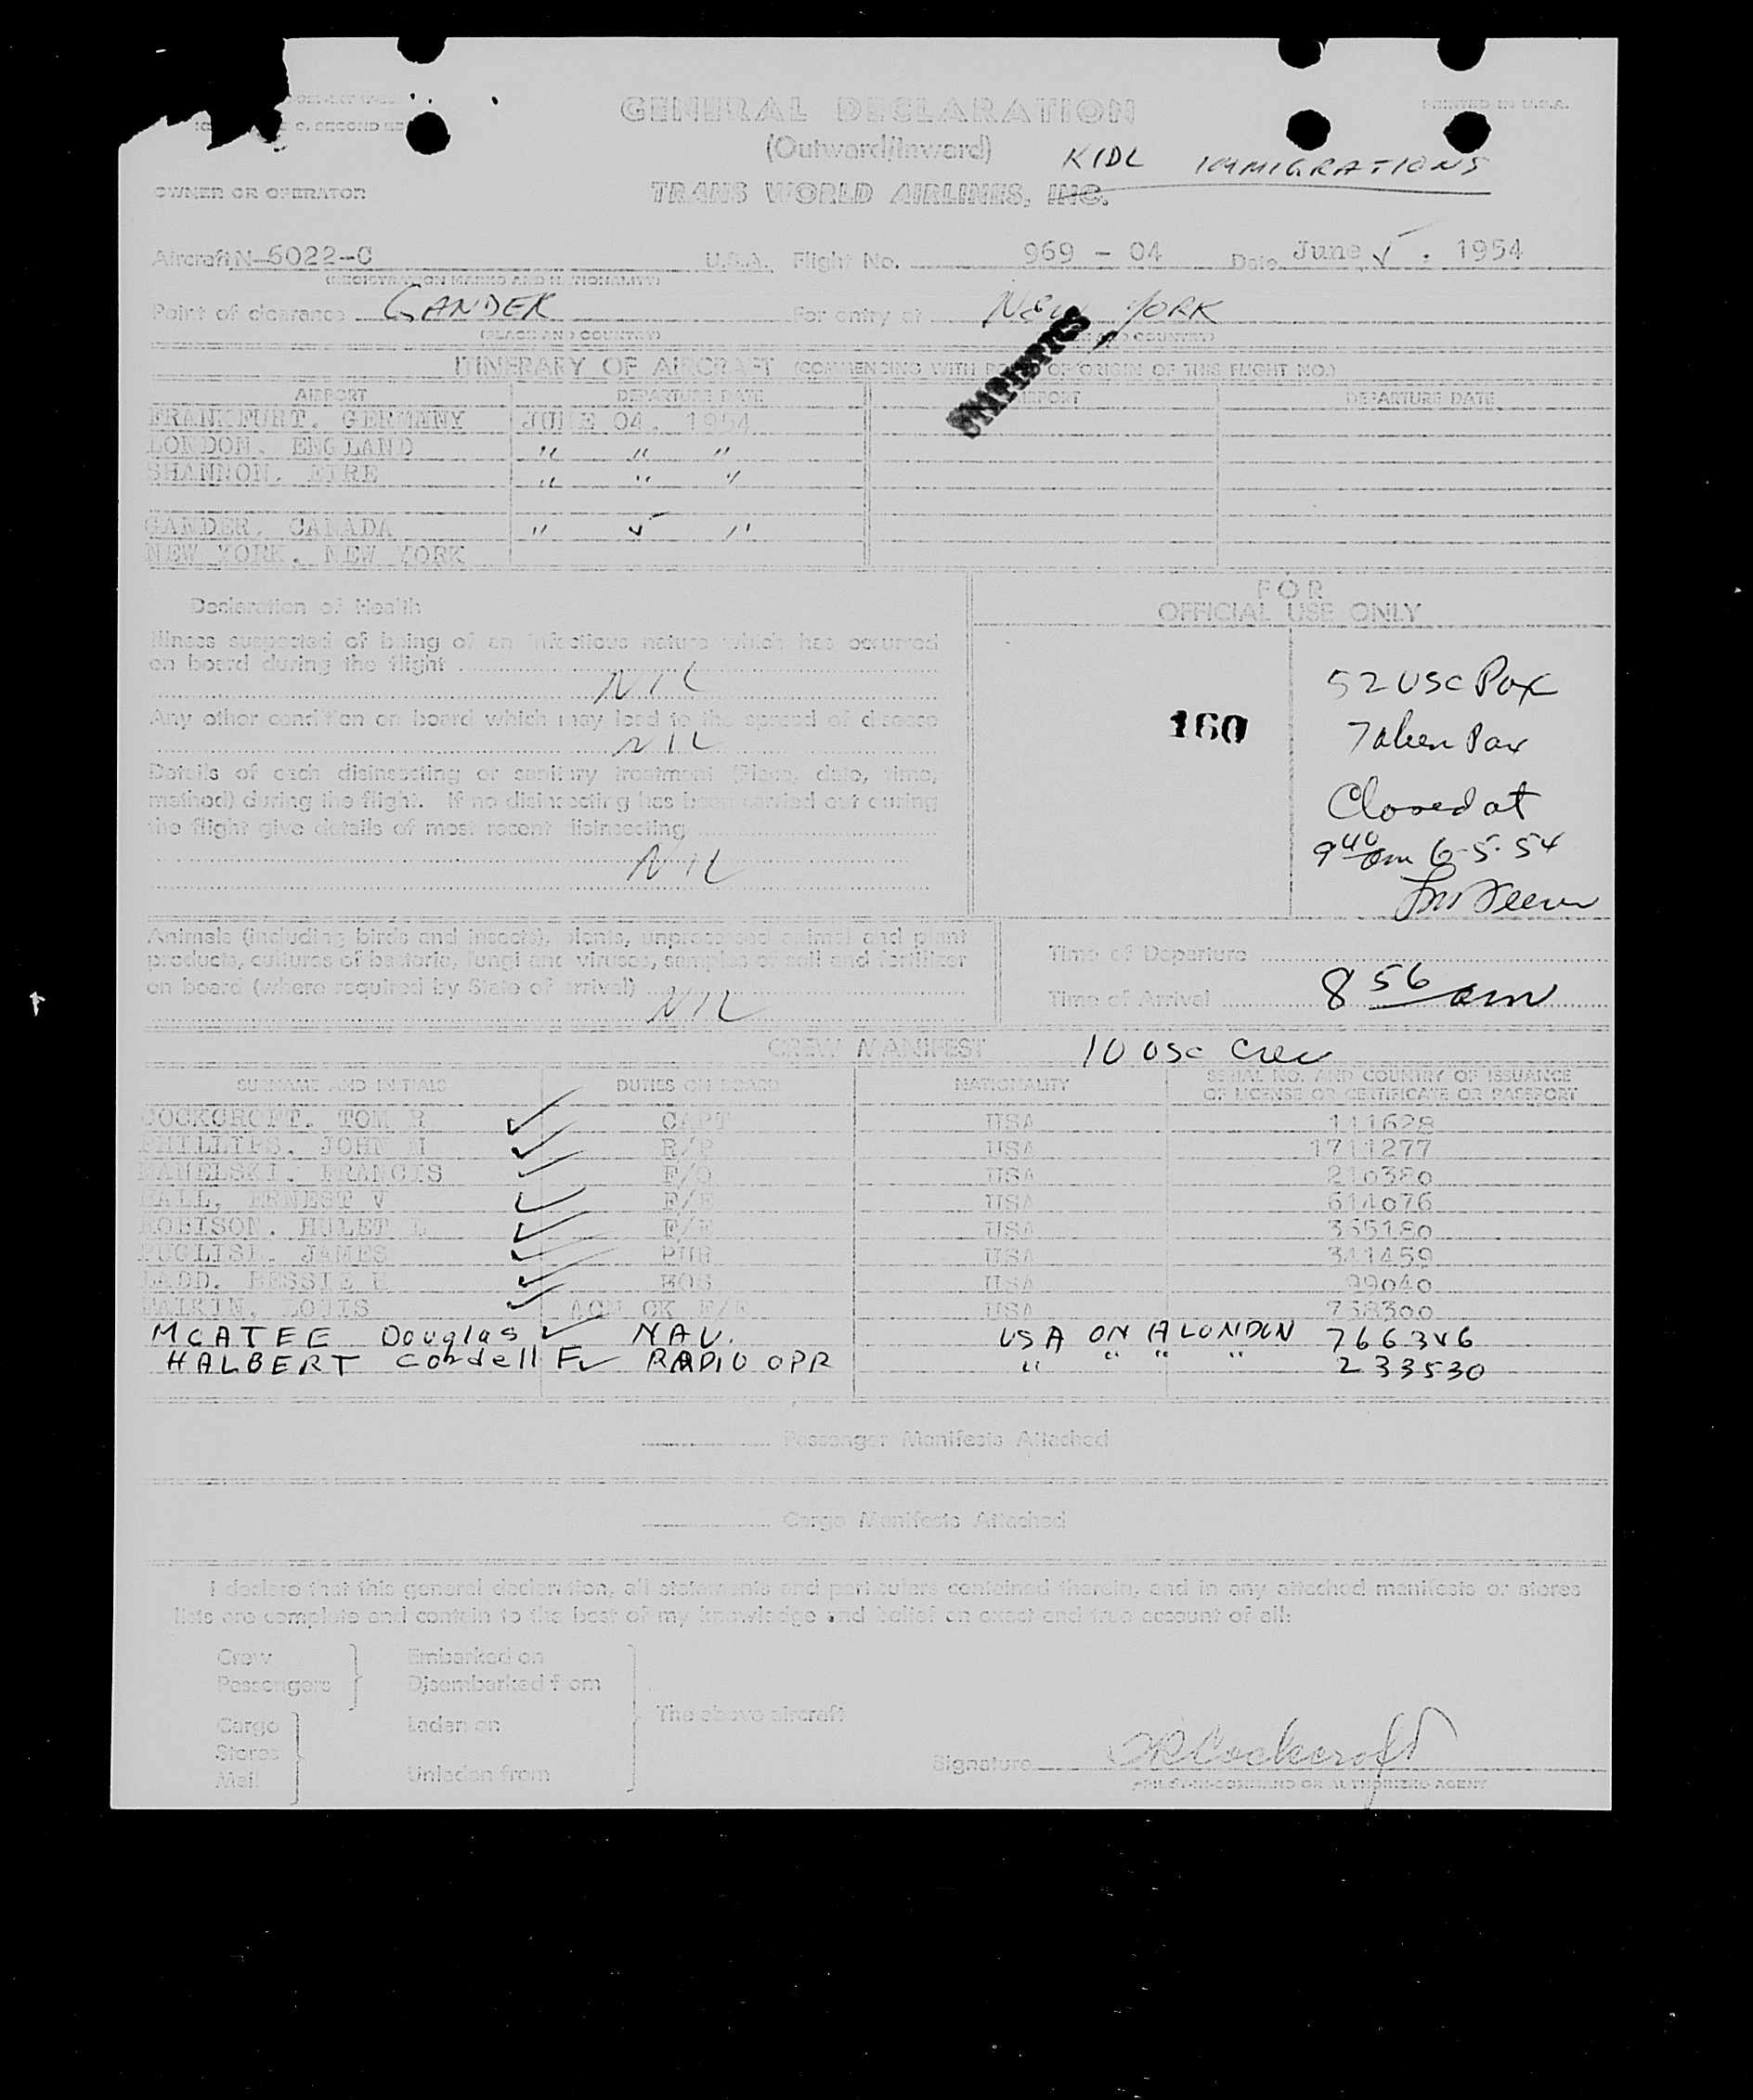 GENERAL DECLARATION
PRINTED IN U.S.A.
(Outward/Inward)
KIDL IMMIGRATIONS
OWNER OR OPERATOR
TRANS WORLD AIRLINES, INC.
Aircraft N-6022-C U.S.A. Flight No. 969 - 04 Date June 5. 1954
(REGISTRATION MARKS AND NATIONALITY)
Point of clearance GANDER For entry at NEW YORK
(PLACE AND COUNTRY) AND COUNTRY)
ITINERARY OF AIRCRAFT (COMMENCING WITH OF ORIGIN OF THIS FLIGHT NO.)
AIRPORT DEPARTURE DATE AIRPORT DEPARTURE DATE
FRANKFURT. GERMANY JUNE 04. 1954
LONDON. ENGLAND " " "
SHANNON. EIRE " " "
GANDER. CANADA " 5 "
NEW YORK. NEW YORK
FOR
OFFICIAL USE ONLY
Declaration of Health
Illness suspected of being of an infectious nature which has occurred
on board during the flight
NIL
Any other condition on board which may lead to the spread of disease
NIL
Details of each disinsecting or sanitary treatment (Place, date, time,
method) during the flight. If no disinsecting has been carried out during
the flight give details of most recent disinsecting
NIL
160
52 USC Pax
Taken Pax
Closed at
9 40 am 6-5-54
Animals (including birds and insects), plants, unprocessed animal and plant
products, cultures of bacteria, fungi and viruses, samples of soil and fertilizer
on board (where required by State of arrival)
NIL
Time of Departure
Time of Arrival 8 56 am
CREW MANIFEST 10 USC Crew
SURNAME AND INITIALS DUTIES ON BOARD NATIONALITY SERIAL NO. AND COUNTRY OF ISSUANCE
OF LICENSE OR CERTIFICATE OR PASSPORT
COCKCROFT. TOM R CAPT USA 111628
PHILLIPS. JOHN H USA 1711277
FRANCIS F/O USA 210380
ERNEST V F/E USA 614076
ROBISON. HULET F/E USA 365180
PUGLISI. JAMES PUR USA 341459
LADD. BESSIE HOS USA 99040
LOUIS ACM CK F/E USA 738300
MCATEE Douglas NAV. USA ON A LONDON 766346
HALBERT Cordell F RADIO OPR " " " " 233530
Passenger Manifests Attached
Cargo Manifests Attached
I declare that this general declaration, all statements and particulars contained therein, and in any attached manifests or stores
lists are complete and contain to the best of my knowledge and belief an exact and true account of all:
Crew
Passengers
Embarked on
Disembarked from
Cargo
Stores
Mail
Laden on
Unladen from
The above aircraft
Signature TRCockcroft
PILOT-IN-COMMAND OR AUTHORIZED AGENT